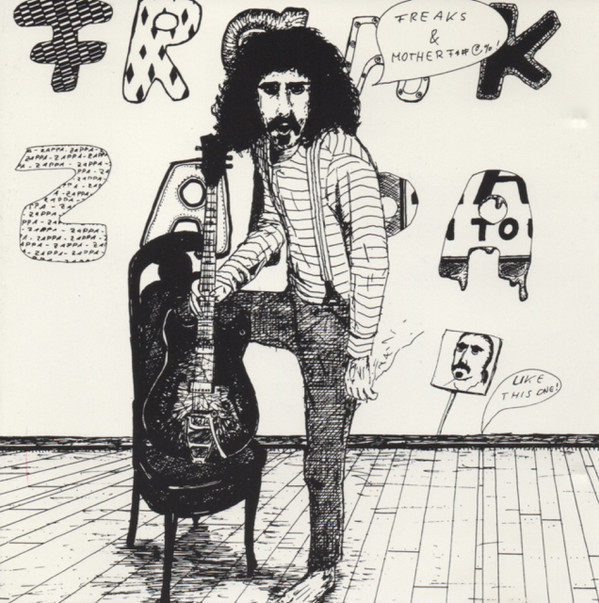 FRANK
FREAKS
&
MOTHERF*#@%!
ZAPPA
ZAPPA-ZAPPA-ZAPPA
TO
LIKE
THIS ONE!